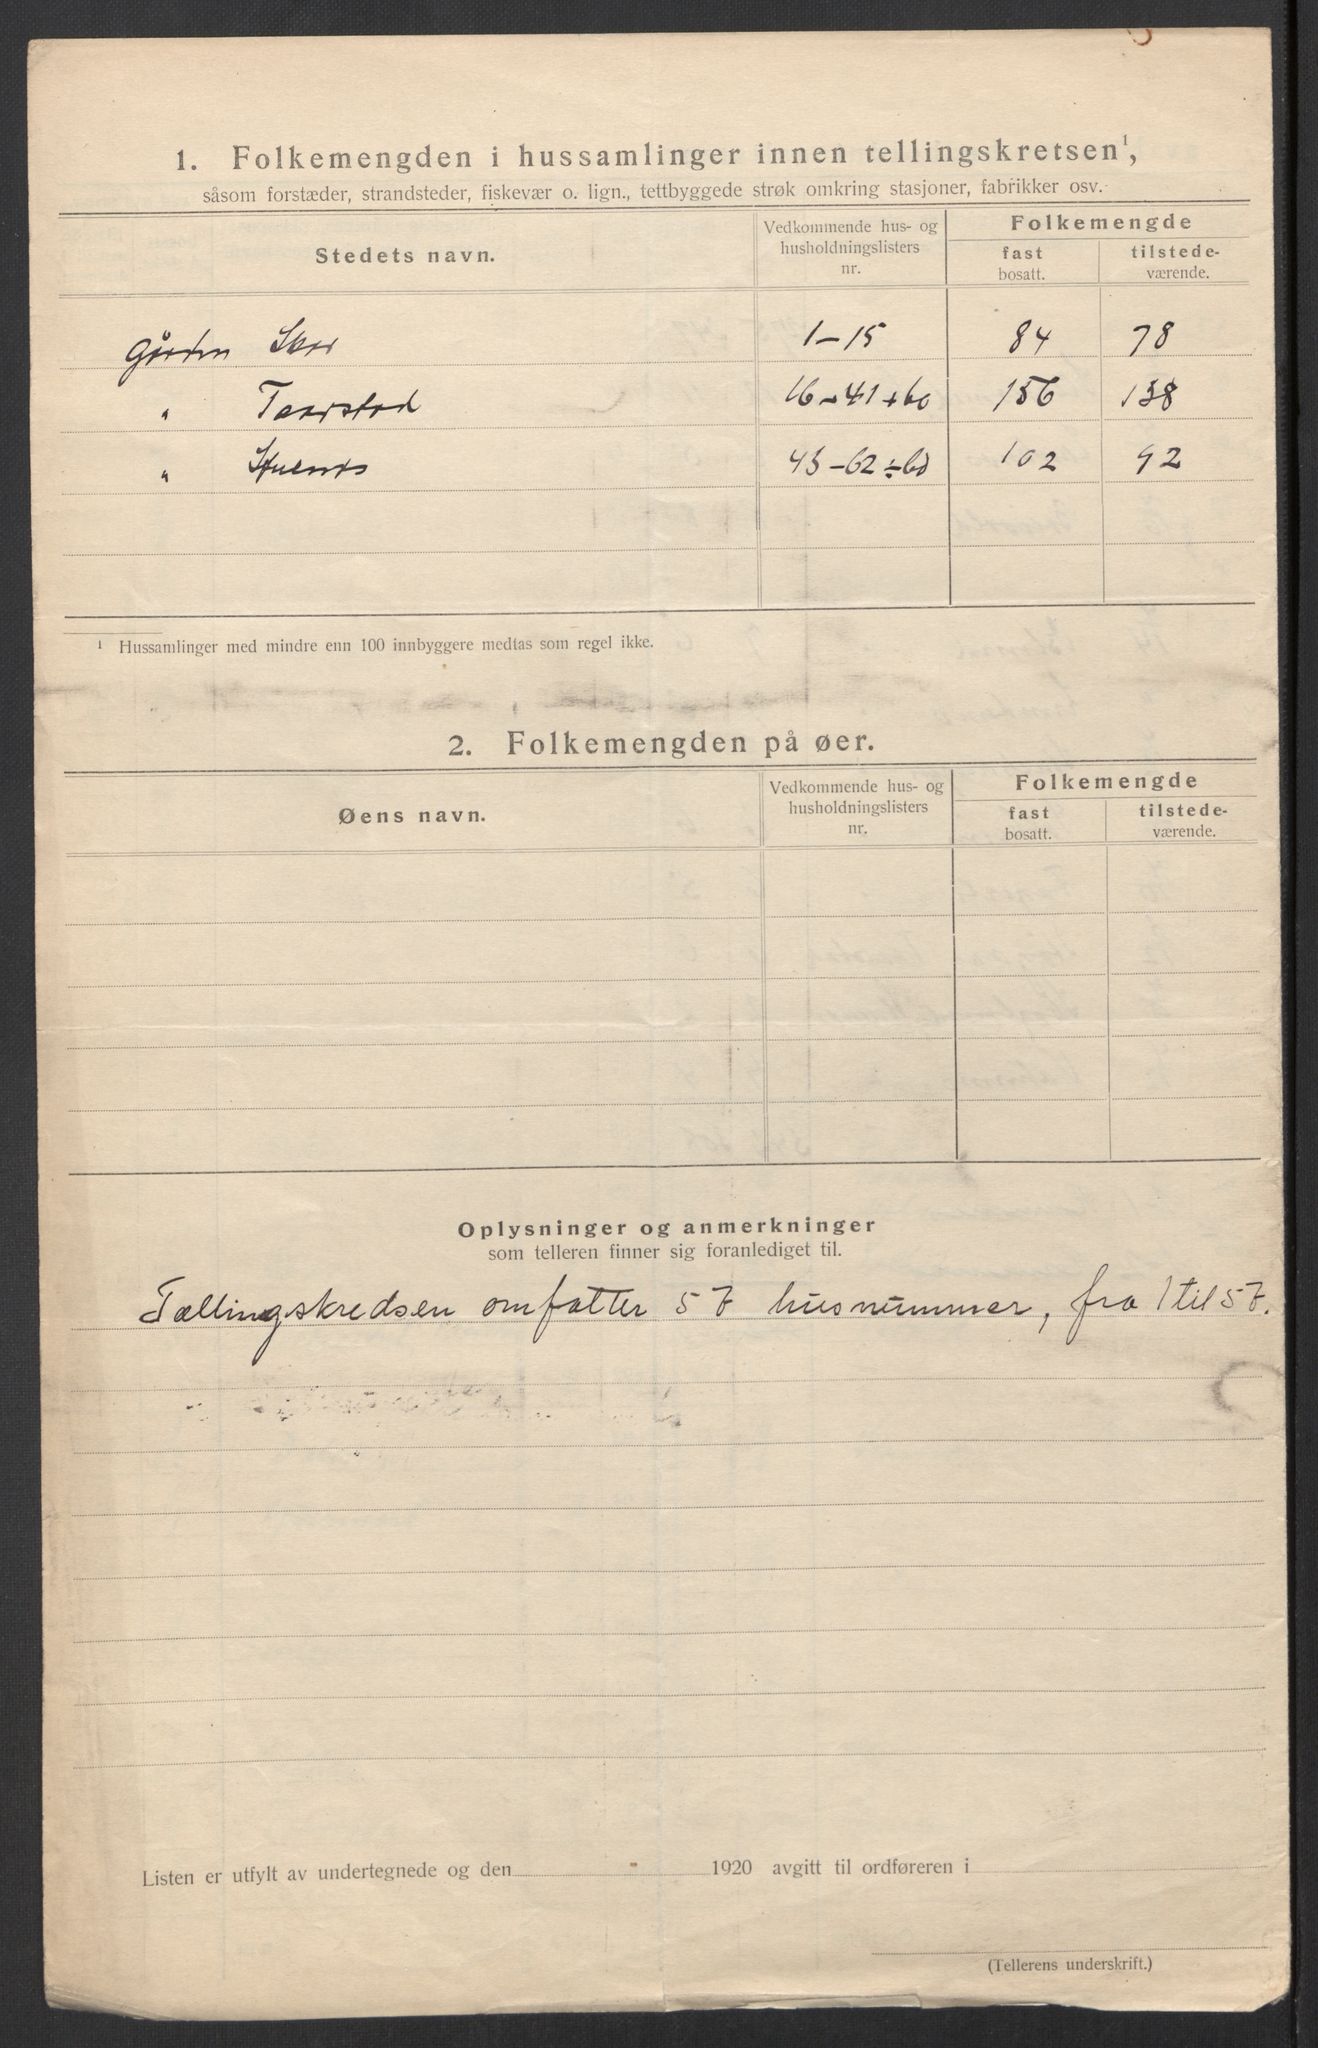 1. Folkemengden i hussamlinger innen tellingskretsen¹,
såsom forstæder, strandsteder, fiskevær o. lign., tettbyggede strøk omkring stasjoner, fabrikker osv.
Stedets navn.
Vedkommende hus- og husholdningslisters nr.
Folkemengde
fast bosatt.
tilstede-værende.
Gården 1-15 84 78
" Taarstad 16-41+60 156 138
" 43-62÷60 102 92
¹ Hussamlinger med mindre enn 100 innbyggere medtas som regel ikke.
2. Folkemengden på øer.
Øens navn.
Vedkommende hus- og husholdningslisters nr.
Folkemengde
fast bosatt.
tilstede-værende.
Oplysninger og anmerkninger
som telleren finner sig foranlediget til.
Tællingskredsen omfatter 57 husnummer, fra 1 til 57.
Listen er utfylt av undertegnede og den 1920 avgitt til ordføreren i
(Tellerens underskrift.)